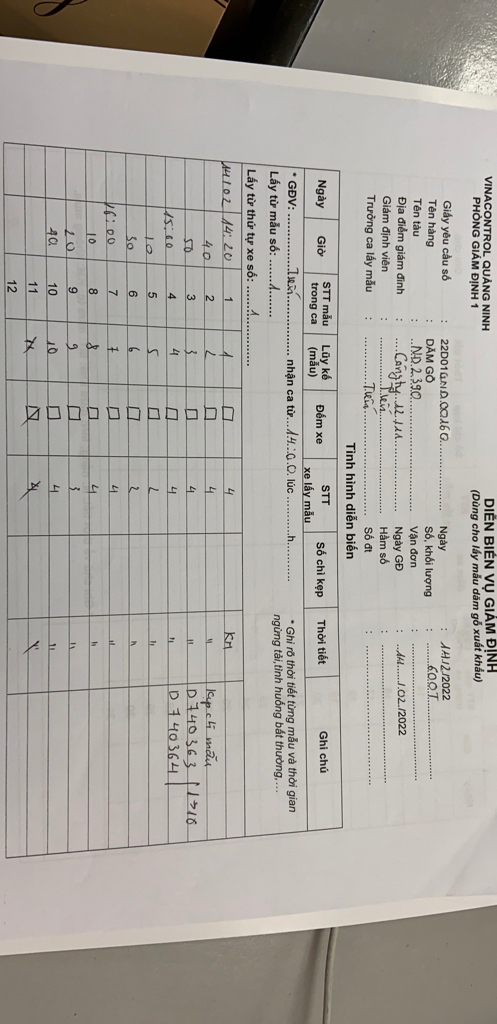 VINACONTROL QUẢNG NINH
PHÒNG GIÁM ĐỊNH 1
DIỄN BIẾN VỤ GIÁM ĐỊNH
(Dùng cho lấy mẫu dăm gỗ xuất khẩu)
Giấy yêu cầu số : 22D01GND.00160 Ngày : 14/2/2022
Tên hàng : DĂM GỖ Số, khối lượng : 600T
Tên tàu : ND.2390 Vận đơn :
Địa điểm giám định : Công ty Ngày GĐ : 14/02/2022
Giám định viên : Hầm số :
Trưởng ca lấy mẫu : Số đt :
Tình hình diễn biến
Ngày Giờ STT mẫu trong ca Lũy kế (mẫu) Đếm xe STT xe lấy mẫu Số chì kẹp Thời tiết Ghi chú
* GĐV: nhận ca từ 14:00 lúc h
Lấy từ mẫu số: 1
Lấy từ thứ tự xe số: 1
* Ghi rõ thời tiết từng mẫu và thời gian
ngừng tải, tình huống bất thường,...
14/02 14:20 1 1 □ 4 Km
40 2 2 □ 4 " Kẹp chì mẫu
50 3 □ 4 " D740363 1→10
15:00 4 4 □ 4 " D740364
10 5 5 □ 2 "
30 6 6 □ 2 "
16:00 7 7 □ 4 "
10 8 8 □ 4 "
20 9 9 □ 3 "
40 10 10 □ 4 "
11 11 □ 4 "
12